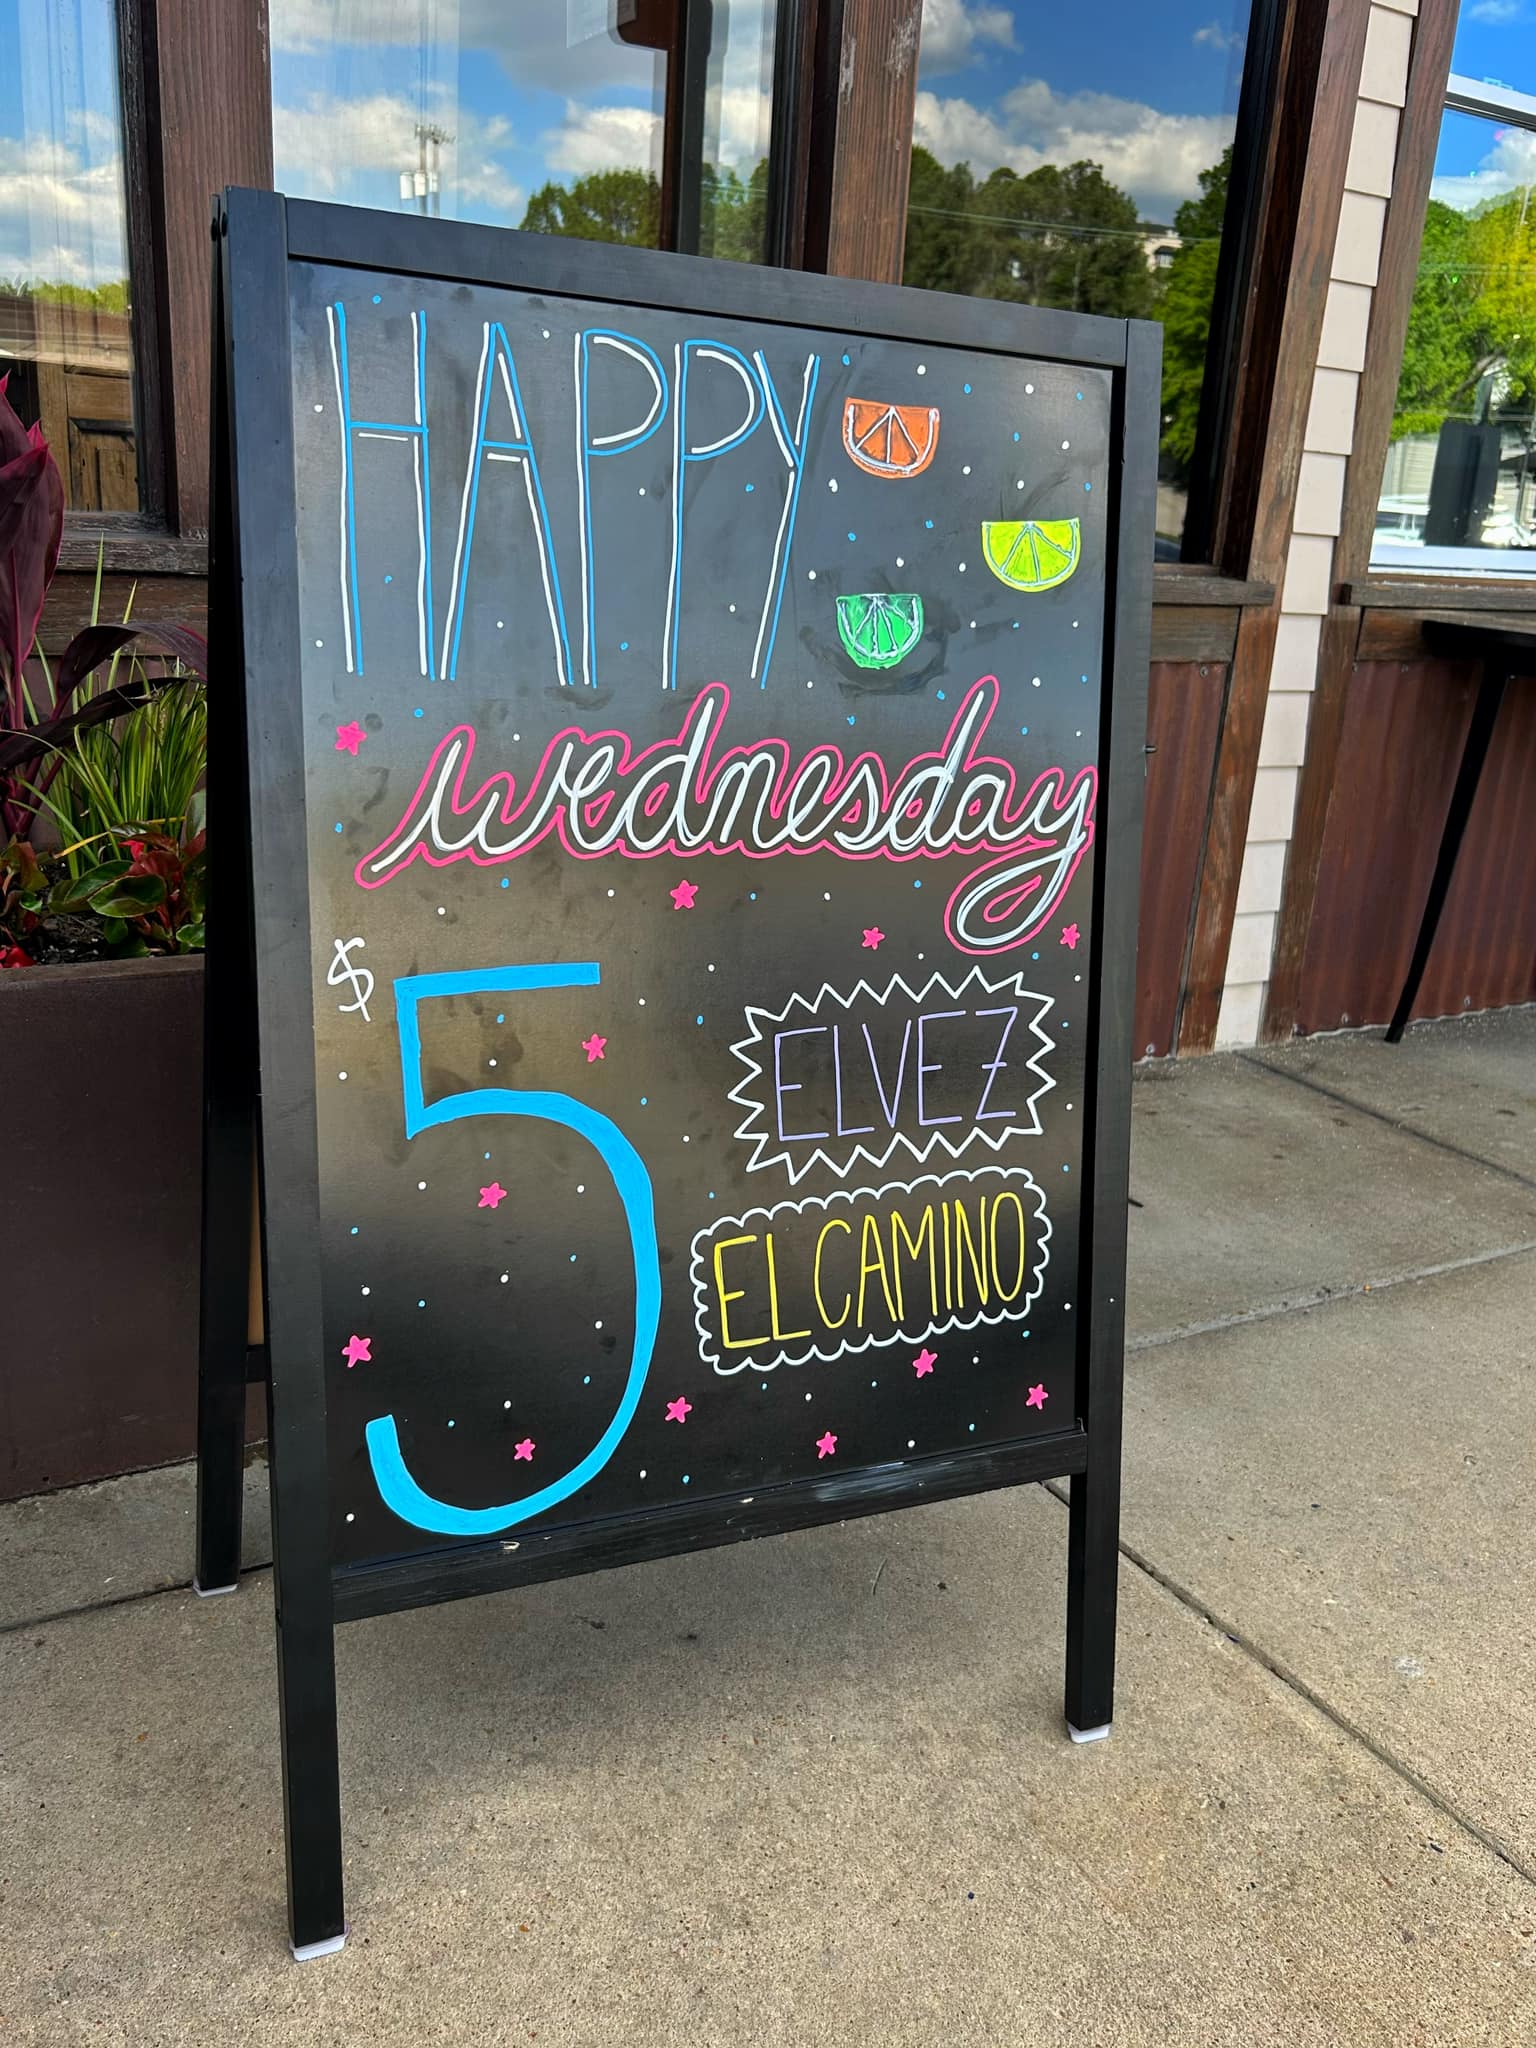 HAPPY
wednesday
$5
ELVEZ
EL CAMINO